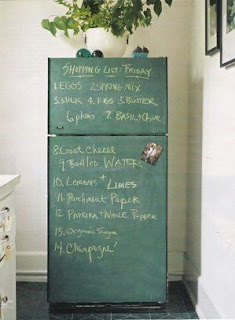 SHOPPING LIST: FRIDAY
1. EGGS 2. SPRING MIX
3. MILK 4. FIGS 5. BUTTER
6 plums 7. BASIL + CHIVE
8. Goat Cheese
9. Bottled WATER
10. Lemons + LIMES
11. Parchment Paper
12 PAPRIKA + WHOLE Pepper
13. Organic Sugar
14. Champagne!